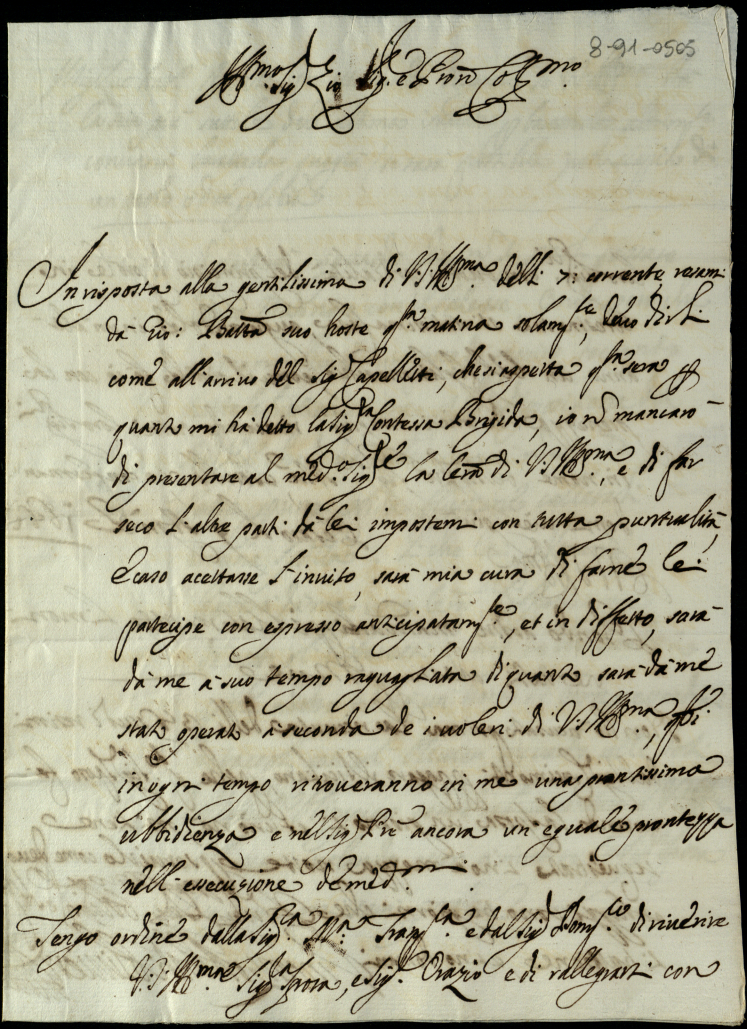 8-91-0505
Ill.mo Sig.r Zio Sig.r e Pron Col.mo
In risposta alla gentilissima di V.S. Ill.ma delli 7: corrente, resami
da Gio: Batta suo hoste q.sta matina solam.te, devo dirLi
come all'arrivo del Sig.r Capelletti, che si aspetta q.sta sera p
quanto mi hà detto la Sig.ra Contessa Brigida, io nõ mancarò
di presentare al med.o Sig.re la lēra di V.S. Ill.ma, e di far
seco l'altre parti da lei impostemi con tutta puntualità,
e caso acettasse l'invito, sarà mia cura di farne lei
partecipe con espresso anticipatam.te, et in diffetto, sarà
da me a suo tempo raguagliata di quanto sarà da me
stato operato a seconda de i voleri di V.S. Ill.ma,
in ogni tempo ritroveranno in me una prontissima
ubbidienza e nel Sig.r Pre ancora un eguale prontezza
nell'essecuzione de med.mi
Tengo ordine dalla Sig.ra M.a Fran.ca e dal Sig.r Dom.co di riverire
V.S. Ill.ma Sig.ra Sposa, e Sig.r Orazio e di rallegrarsi con